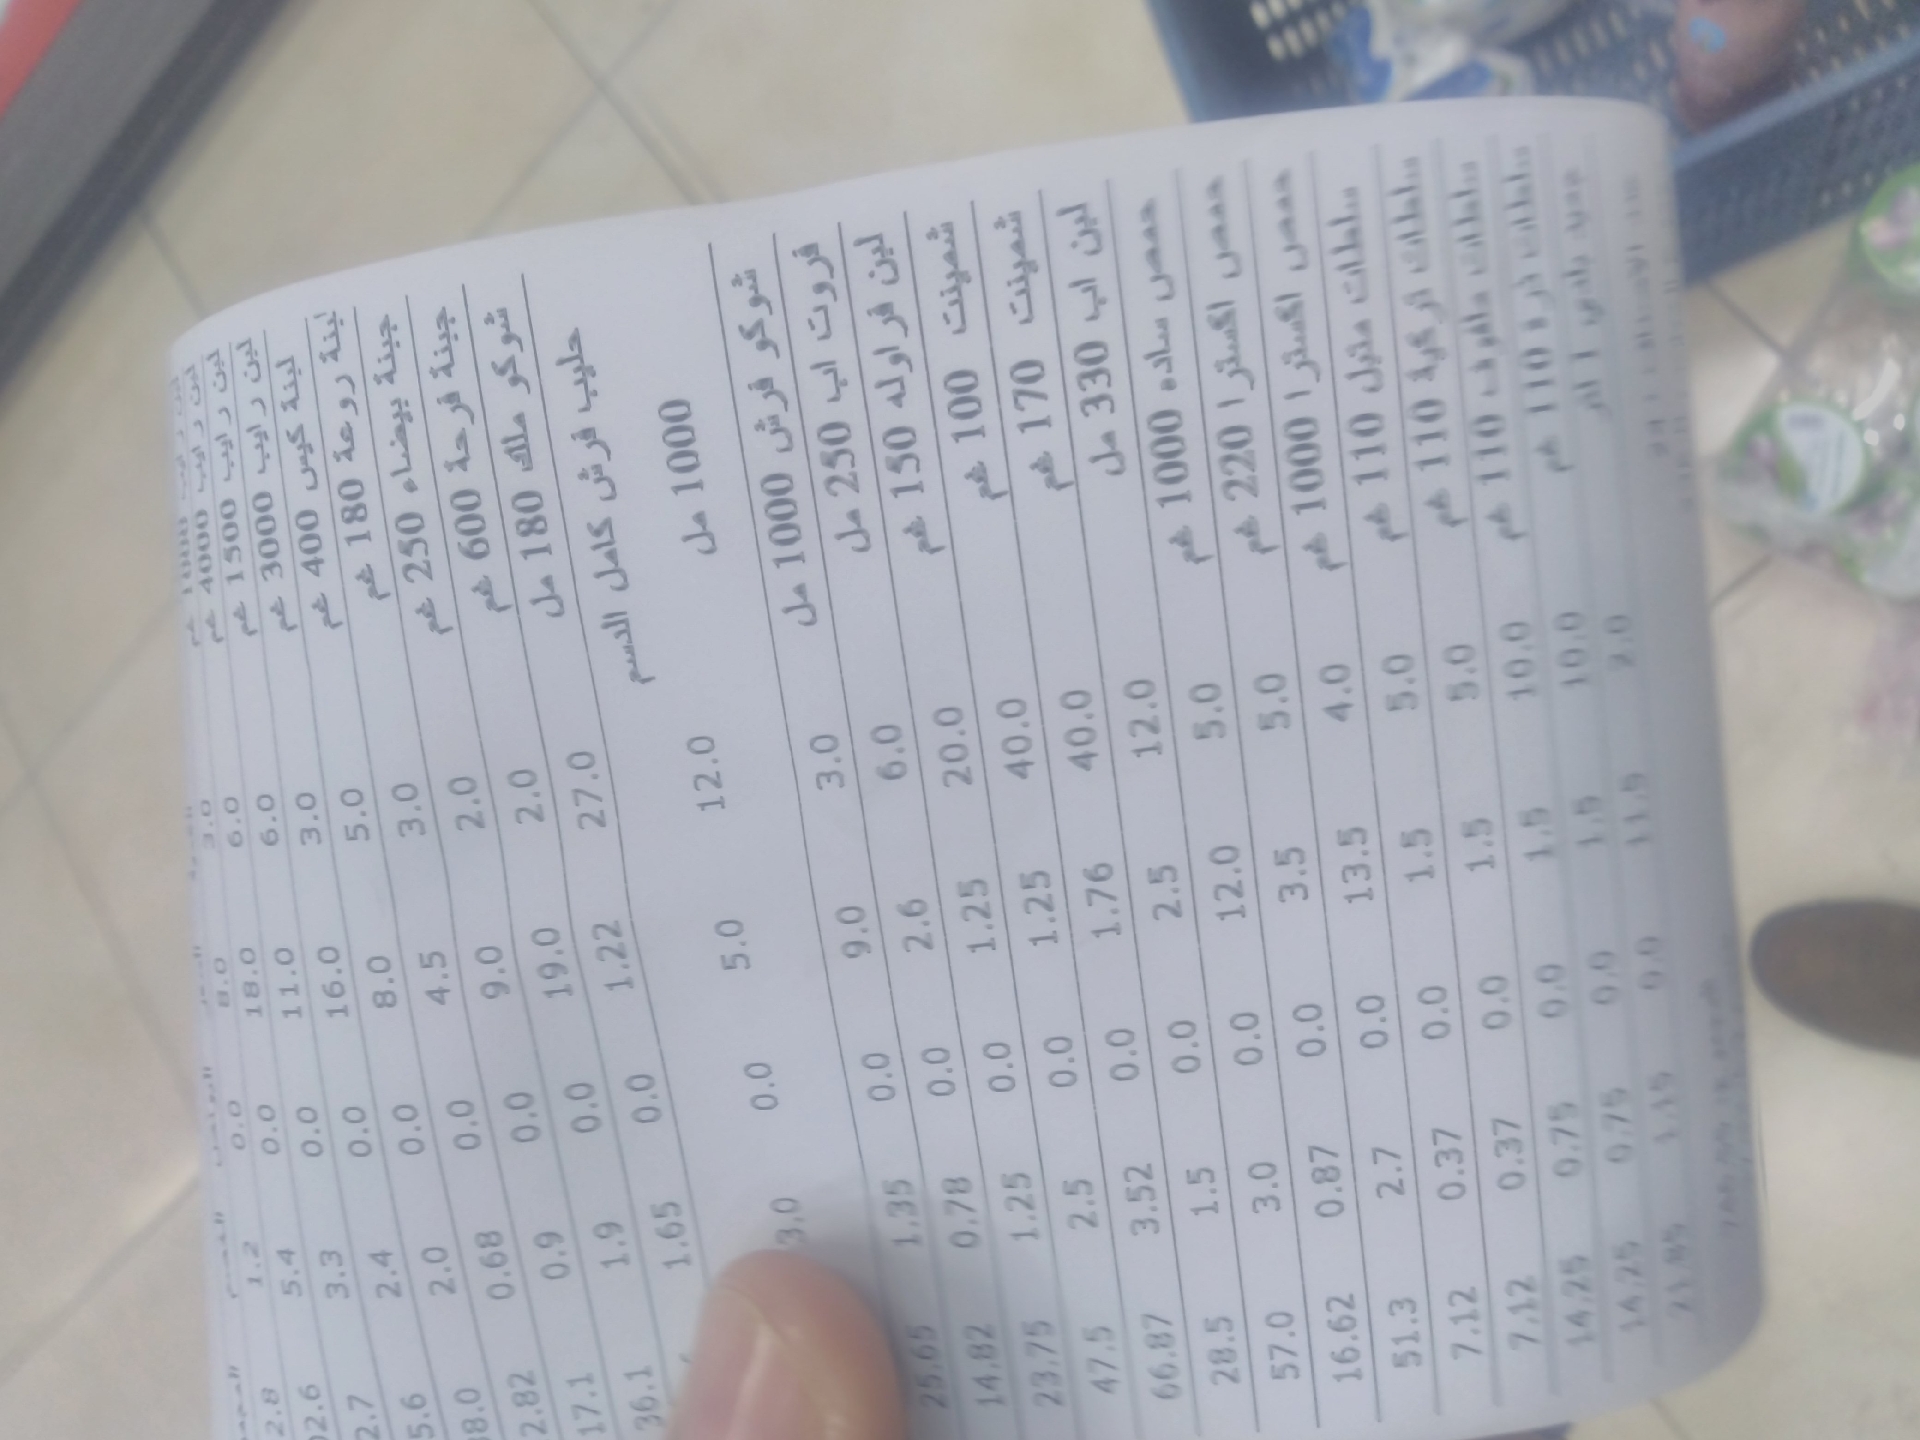 لبن رايب 1000 غم 3.0 8.0 0.0 1.2 2.8
لبن رايب 4000 غم 6.0 18.0 0.0 5.4 02.6
لبن رايب 1500 غم 6.0 11.0 0.0 3.3 2.7
لبن رايب 3000 غم 3.0 16.0 0.0 2.4 5.6
لبنة كيس 400 غم 5.0 8.0 0.0 2.0 38.0
لبنة روعة 180 غم 3.0 4.5 0.0 0.68 2.82
جبنة بيضاء 250 غم 2.0 9.0 0.0 0.9 17.1
جبنة فرحة 600 غم 2.0 19.0 0.0 1.9 36.1
شوكو ملك 180 مل 27.0 1.22 0.0 1.65
حليب فرش كامل الدسم 12.0 5.0 0.0 3.0
1000 مل
شوكو فرش 1000 مل 3.0 9.0 0.0 1.35 25.65
فروت اب 250 مل 6.0 2.6 0.0 0.78 14.82
لبن فراوله 150 غم 20.0 1.25 0.0 1.25 23.75
شمينت 100 غم 40.0 1.25 0.0 2.5 47.5
شمينت 170 غم 40.0 1.76 0.0 3.52 66.87
لبن اب 330 مل 12.0 2.5 0.0 1.5 28.5
حمص ساده 1000 غم 5.0 12.0 0.0 3.0 57.0
حمص اكسترا 220 غم 5.0 3.5 0.0 0.87 16.62
حمص اكسترا 1000 غم 4.0 13.5 0.0 2.7 51.3
سلطات متبل 110 غم 5.0 1.5 0.0 0.37 7.12
سلطات تركية 110 غم 5.0 1.5 0.0 0.37 7.12
سلطات ملفوف 110 غم 10.0 1.5 0.0 0.75 14.25
سلطات ذرة 110 غم 10.0 1.5 0.0 0.75 14.25
1 لتر 2.0 11.5 0.0 1.15 21.85